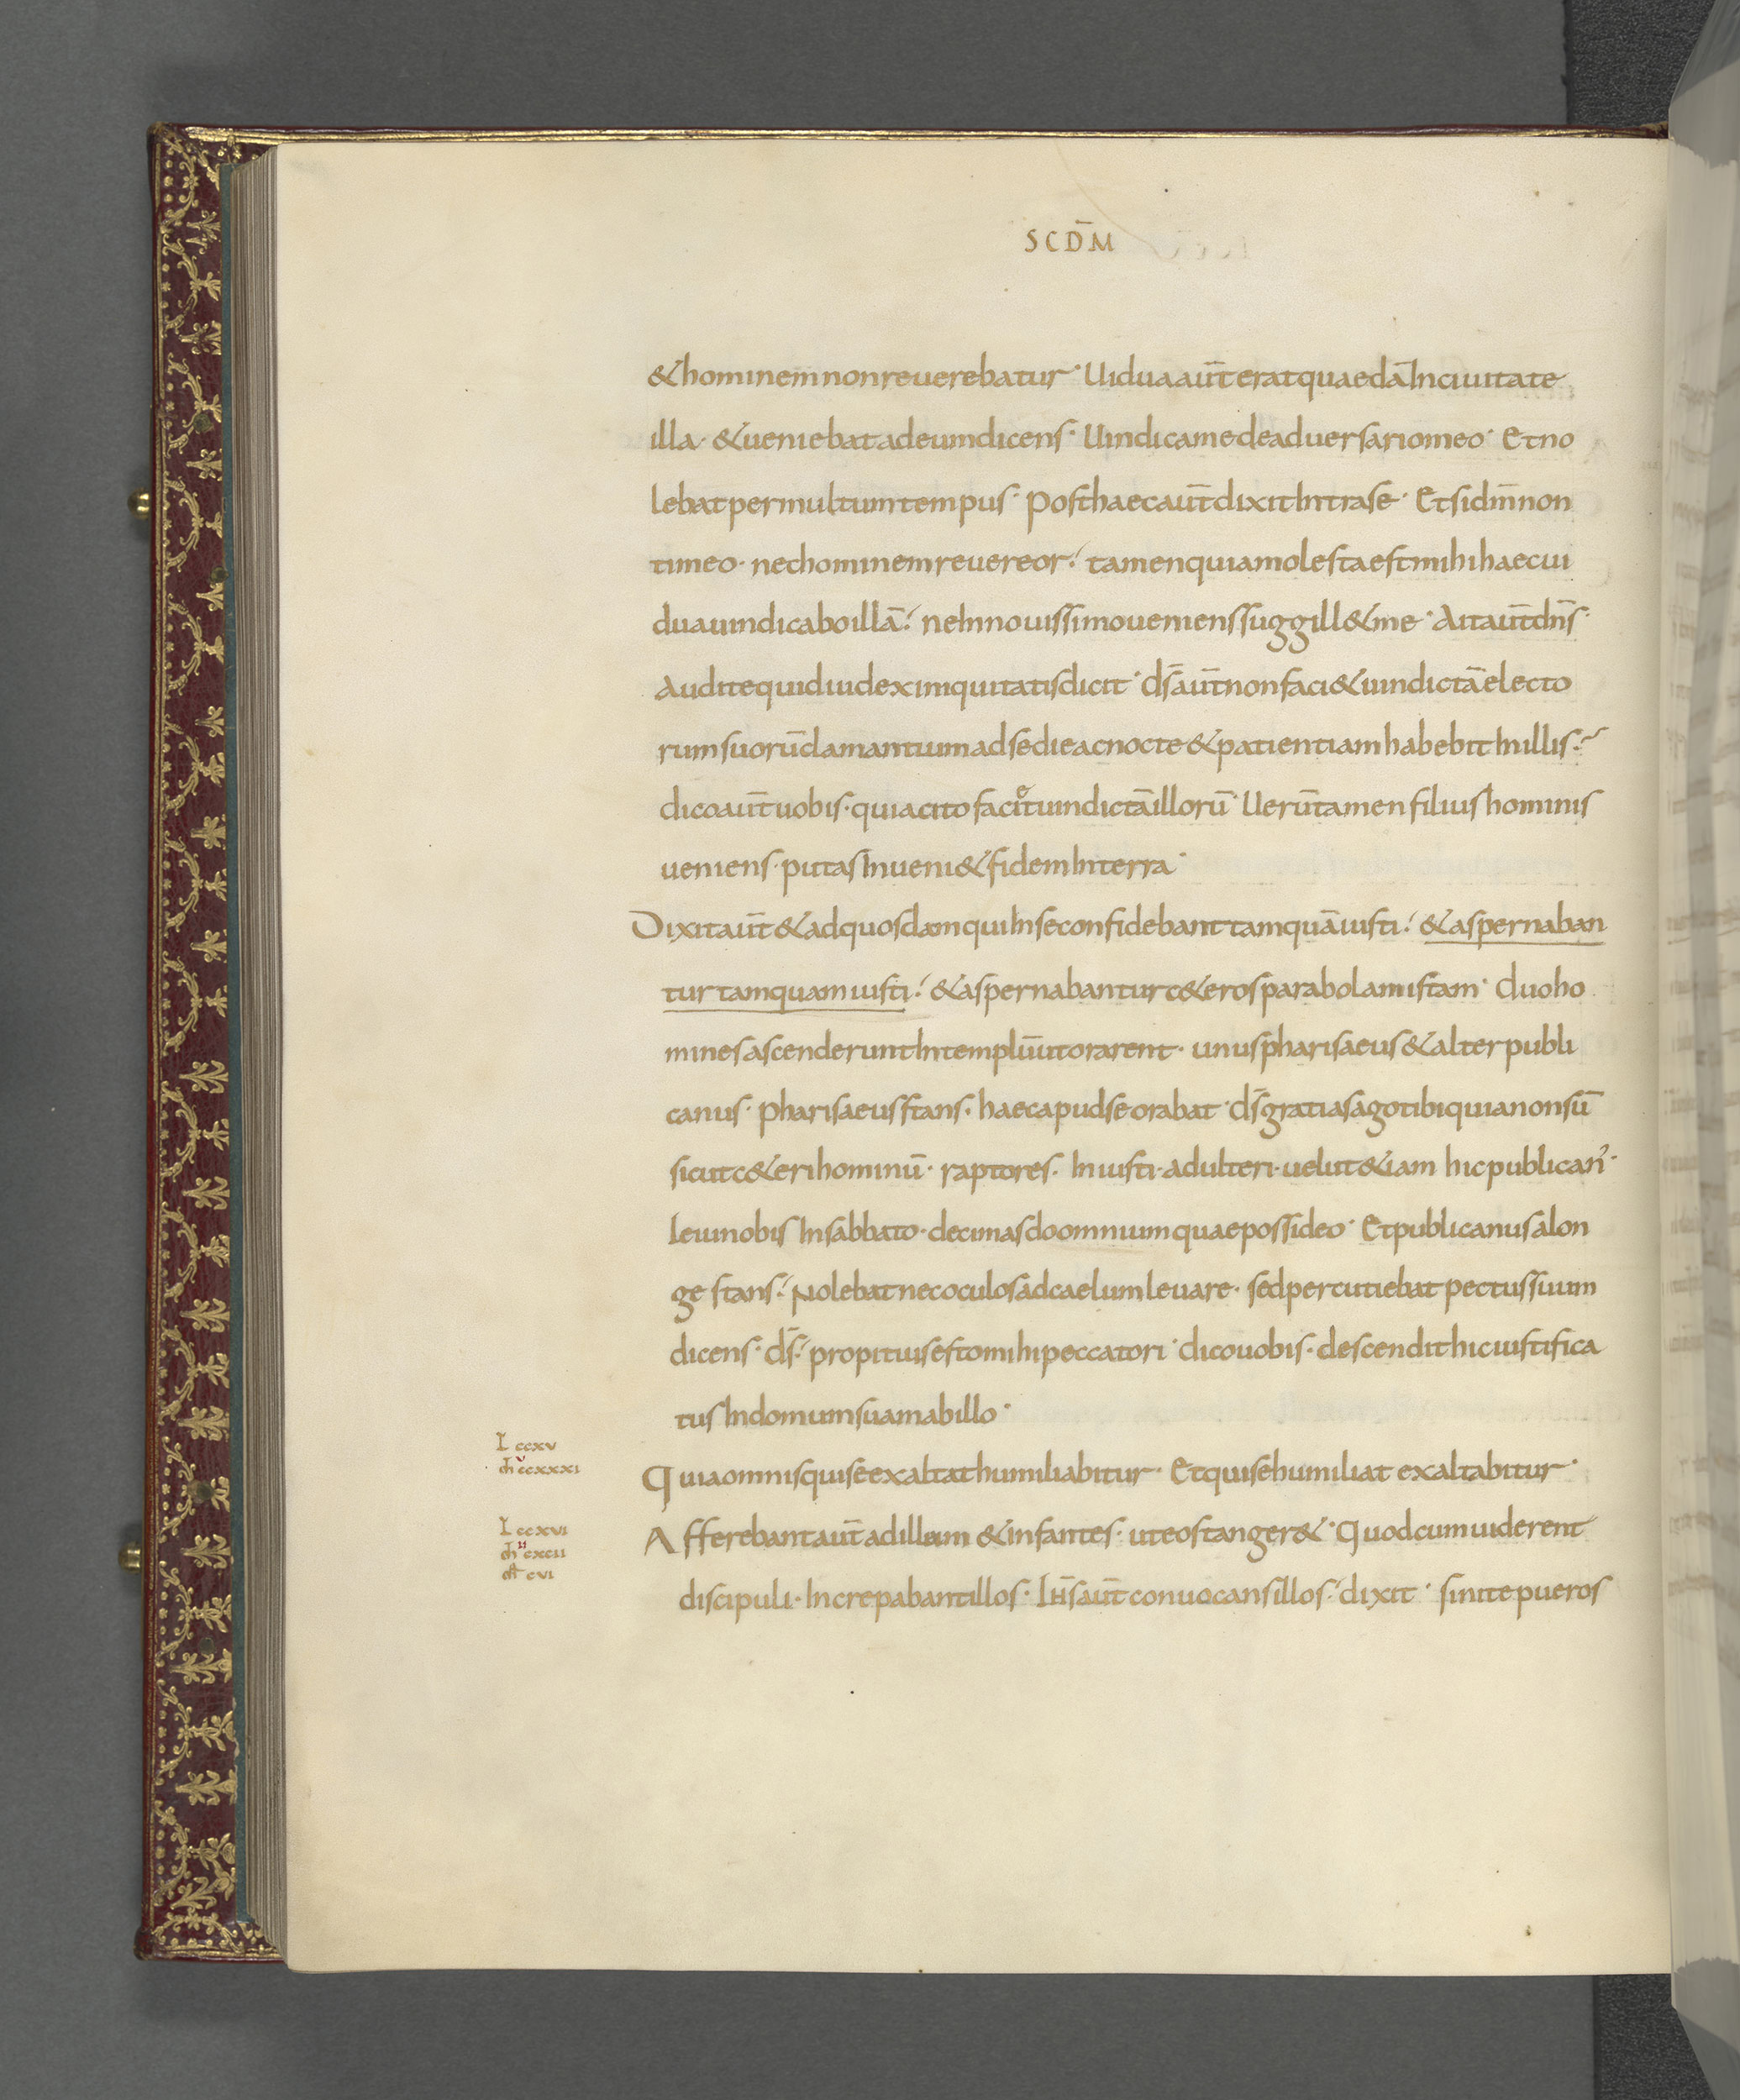 SCD̄M
& hominem non reuerebatur· Uidua aut̄ erat quaedā In ciuitate
illa· & ueniebat ad eum dicens· Uindica me de aduersario meo· Et no
lebat per multum tempus· Post haec aut̄ dixit Intra se· Et si dm̄ non
timeo· nec hominem reuereor· tamen quia molesta est mihi haec ui
dua uindicabo illā· ne In nouissimo ueniens suggill& me· Ait aut̄ dn̄s·
Audite quid iudex iniquitatis dicit· ds̄ aut̄ non faci& uindictā electo
rum suorū clamantium ad se die ac nocte & patientiam habebit In illis·
dico aut̄ uobis· quia cito faci&̄ uindictā illorū· Uerūtamen filius hominis
ueniens· putas Inueni& fidem In terra·
Dixit aut̄ & ad quosdam qui In se confidebant tamquā iusti· & aspernaban
tur tamquam iusti· & aspernabantur c&eros parabolam istam· duo ho
mines ascenderunt In templū ut orarent· unus pharisaeus & alter publi
canus· Pharisaeus stans· haec apud se orabat· ds̄ gratias ago tibi quia non sū
sicut c&eri hominū· raptores· Iniusti· adulteri· uelut &iam hic publican᾿·
Ieiuno bis In sabbato· decimas do omnium quae possideo· Et publicanus a lon
ge stans· Nolebat nec oculos ad caelum leuare· sed percutiebat pectus suum
dicens· ds̄· propitius esto mihi peccatori· dico uobis· descendit hic iustifica
tus In domum suam ab illo·
L ccxv
mt̄ ccxxxi
Quia omnis qui se exaltat humiliabitur· Et qui se humiliat exaltabitur·
L ccxvi
mt̄ cxcii
mr̄ cvi
Afferebant aut̄ ad illum & infantes· ut eos tanger&· Quod cum uiderent
discipuli· Increpabant illos· Ih̄s aut̄ conuocans illos· dixit· sinite pueros